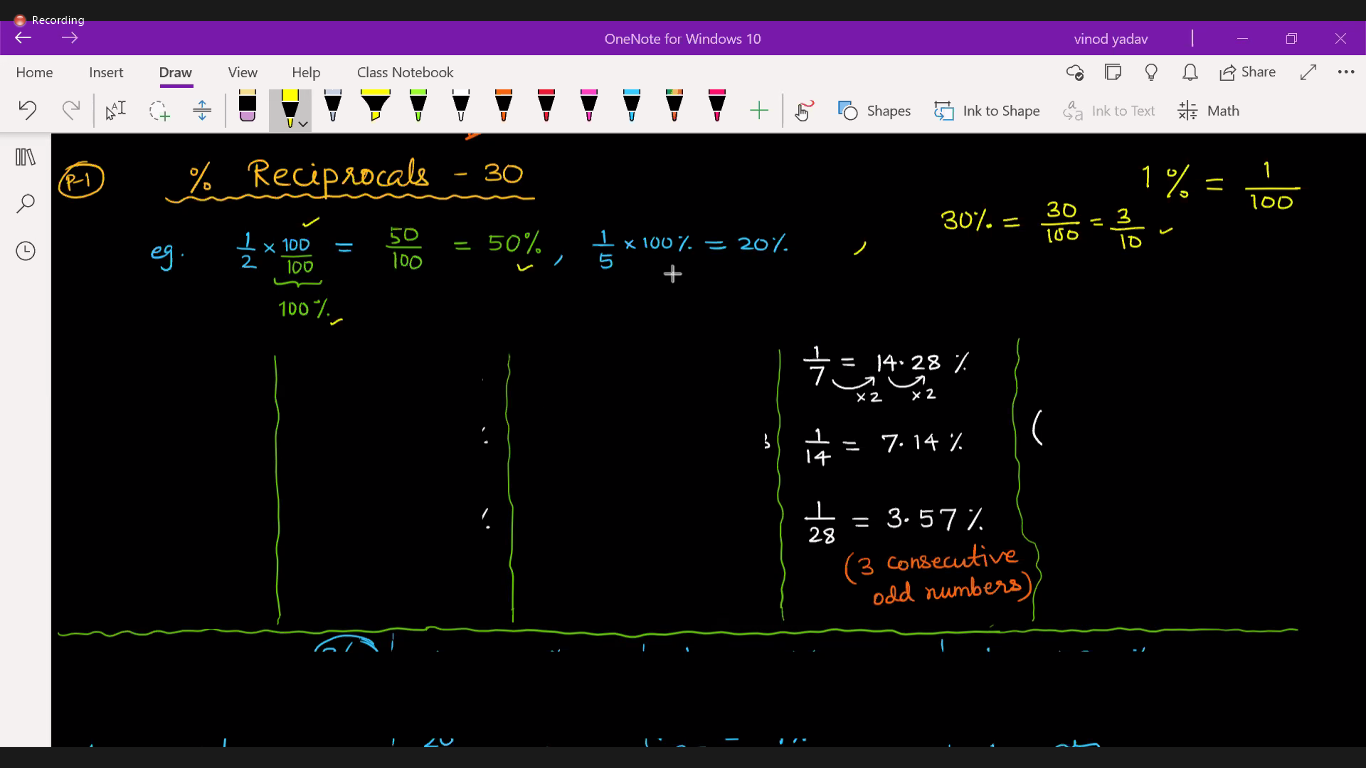 Recording
OneNote for Windows 10
vinod yadav
Home Insert Draw View Help Class Notebook
Share
Shapes Ink to Shape Ink to Text Math
P-1 % Reciprocals - 30
1% = 1/100
30% = 30/100 = 3/10
eg. 1/2 × 100/100 = 50/100 = 50%, 1/5 × 100% = 20% ,
100%
1/7 = 14.28 %
×2 ×2
1/14 = 7.14 % (
1/28 = 3.57 %
(3 consecutive
odd numbers)